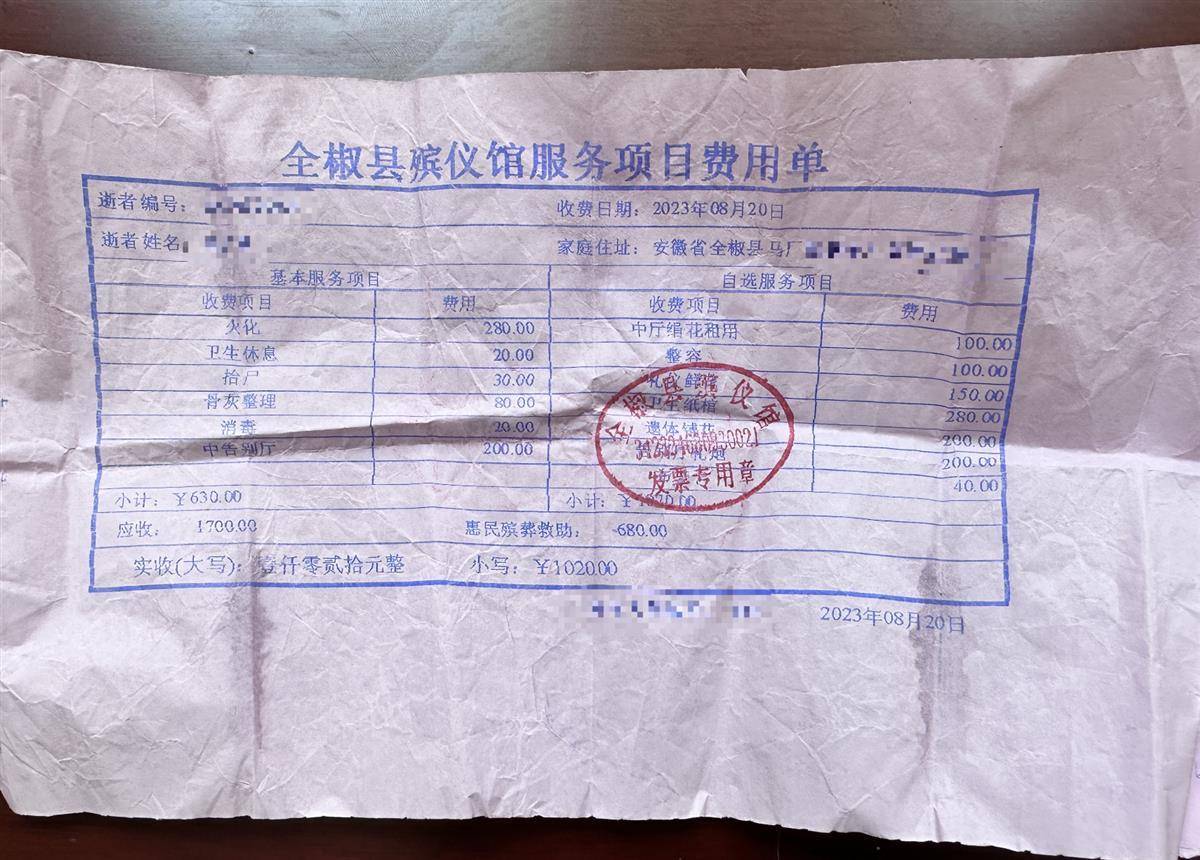 全椒县殡仪馆服务项目费用单
逝者编号： 收费日期： 2023年08月20日
逝者姓名 家庭住址： 安徽省全椒县马厂
基本服务项目 自选服务项目
收费项目 费用 收费项目 费用
火化 280.00 中厅绢花租用 100.00
卫生休息 20.00 整容 100.00
抬尸 30.00 礼仪鲜花 150.00
骨灰整理 80.00 卫生纸棺 280.00
消毒 20.00 遗体铺花 200.00
中告别厅 200.00 200.00
40.00
小计： ￥630.00 小计： ￥1070.00
应收： 1700.00 惠民殡葬救助： -680.00
实收(大写)： 壹仟零贰拾元整 小写： ￥1020.00
2023年08月20日
全椒县殡仪馆
发票专用章